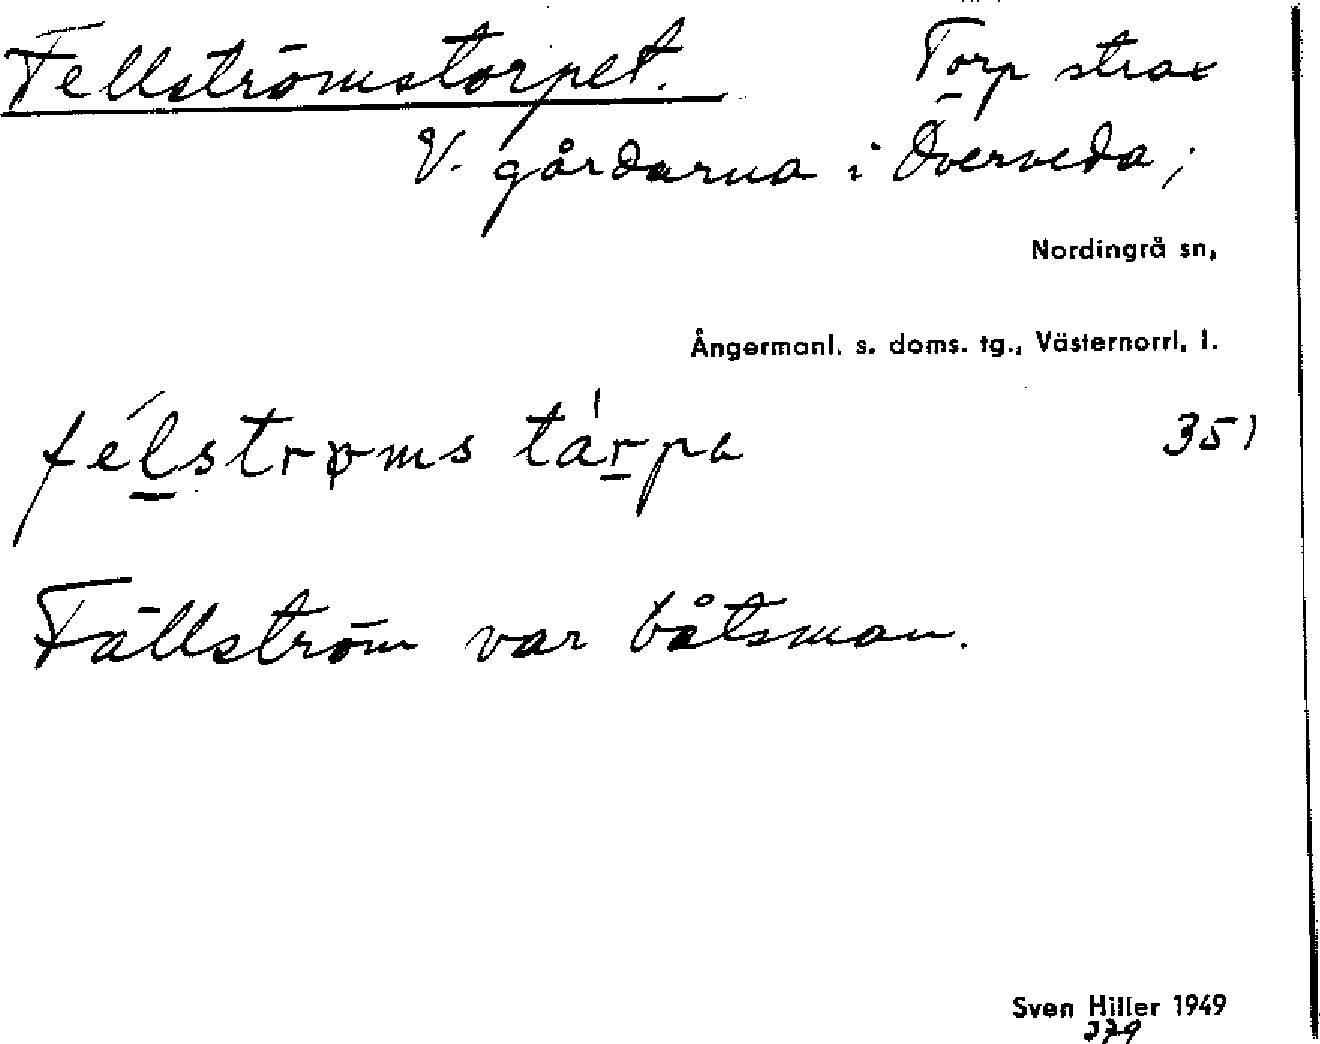 Fellströmstorpet. Torp strax
V. gårdarna i Överveda;
Nordingrå sn,
Ångermanl. s. doms. tg., Västernorrl. l.
félstrøms tárpa 351
Fällström var båtsman.
Sven Hiller 1949
379